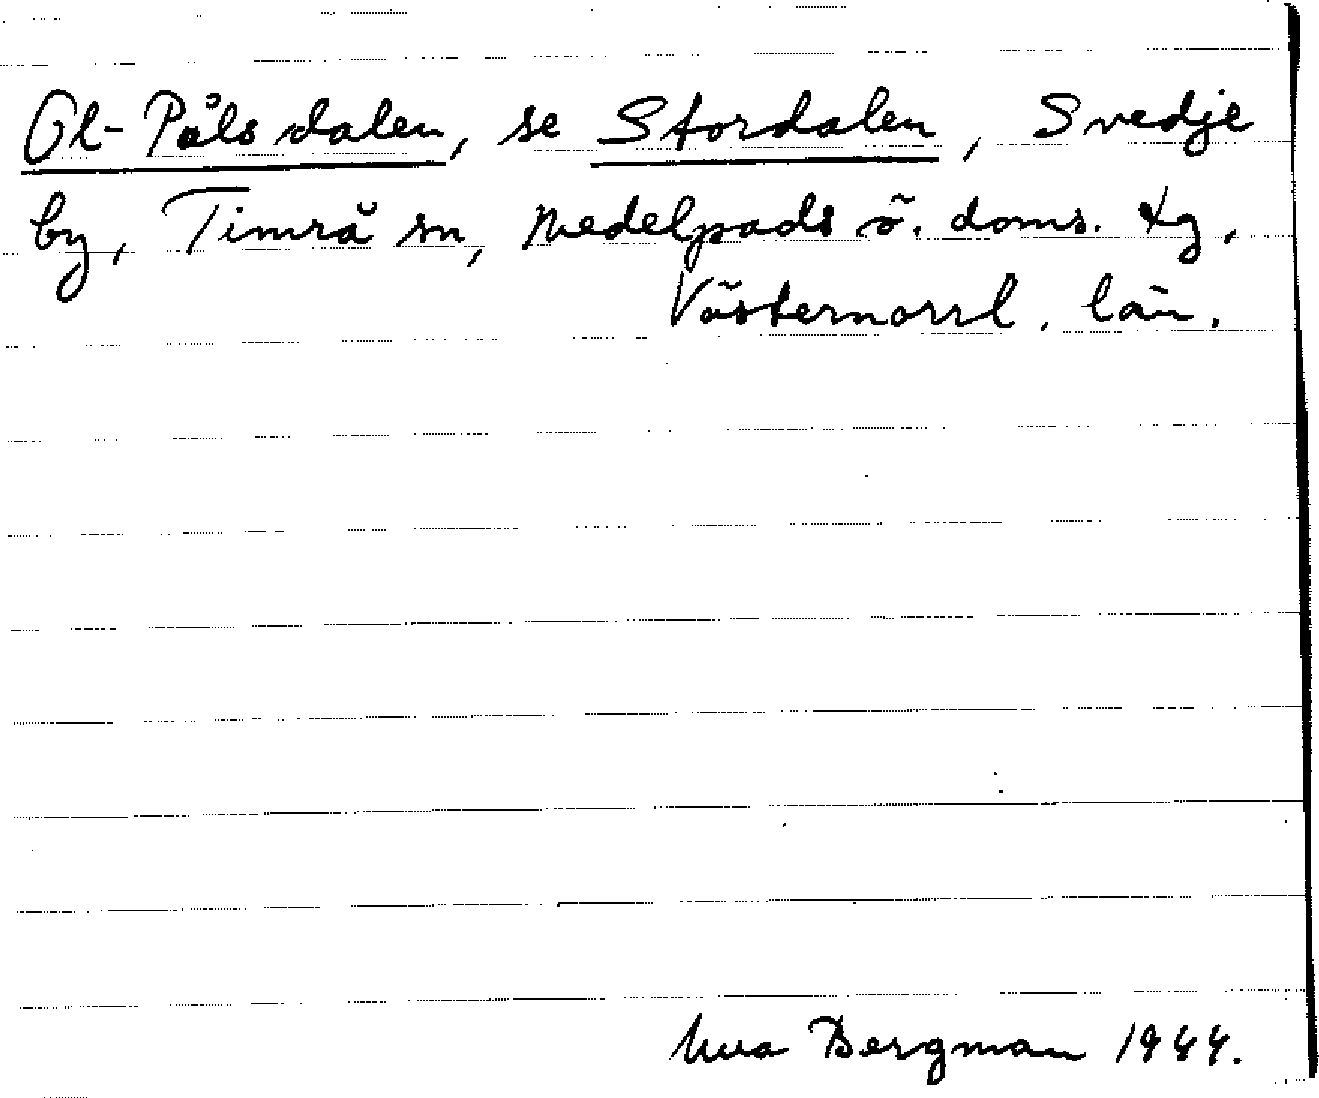 Ol-Påls dalen, se Stordalen, Svedje
by, Timrå sn, Medelpads ö. doms. tg,
Västernorrl. län.
Bergman 1944.